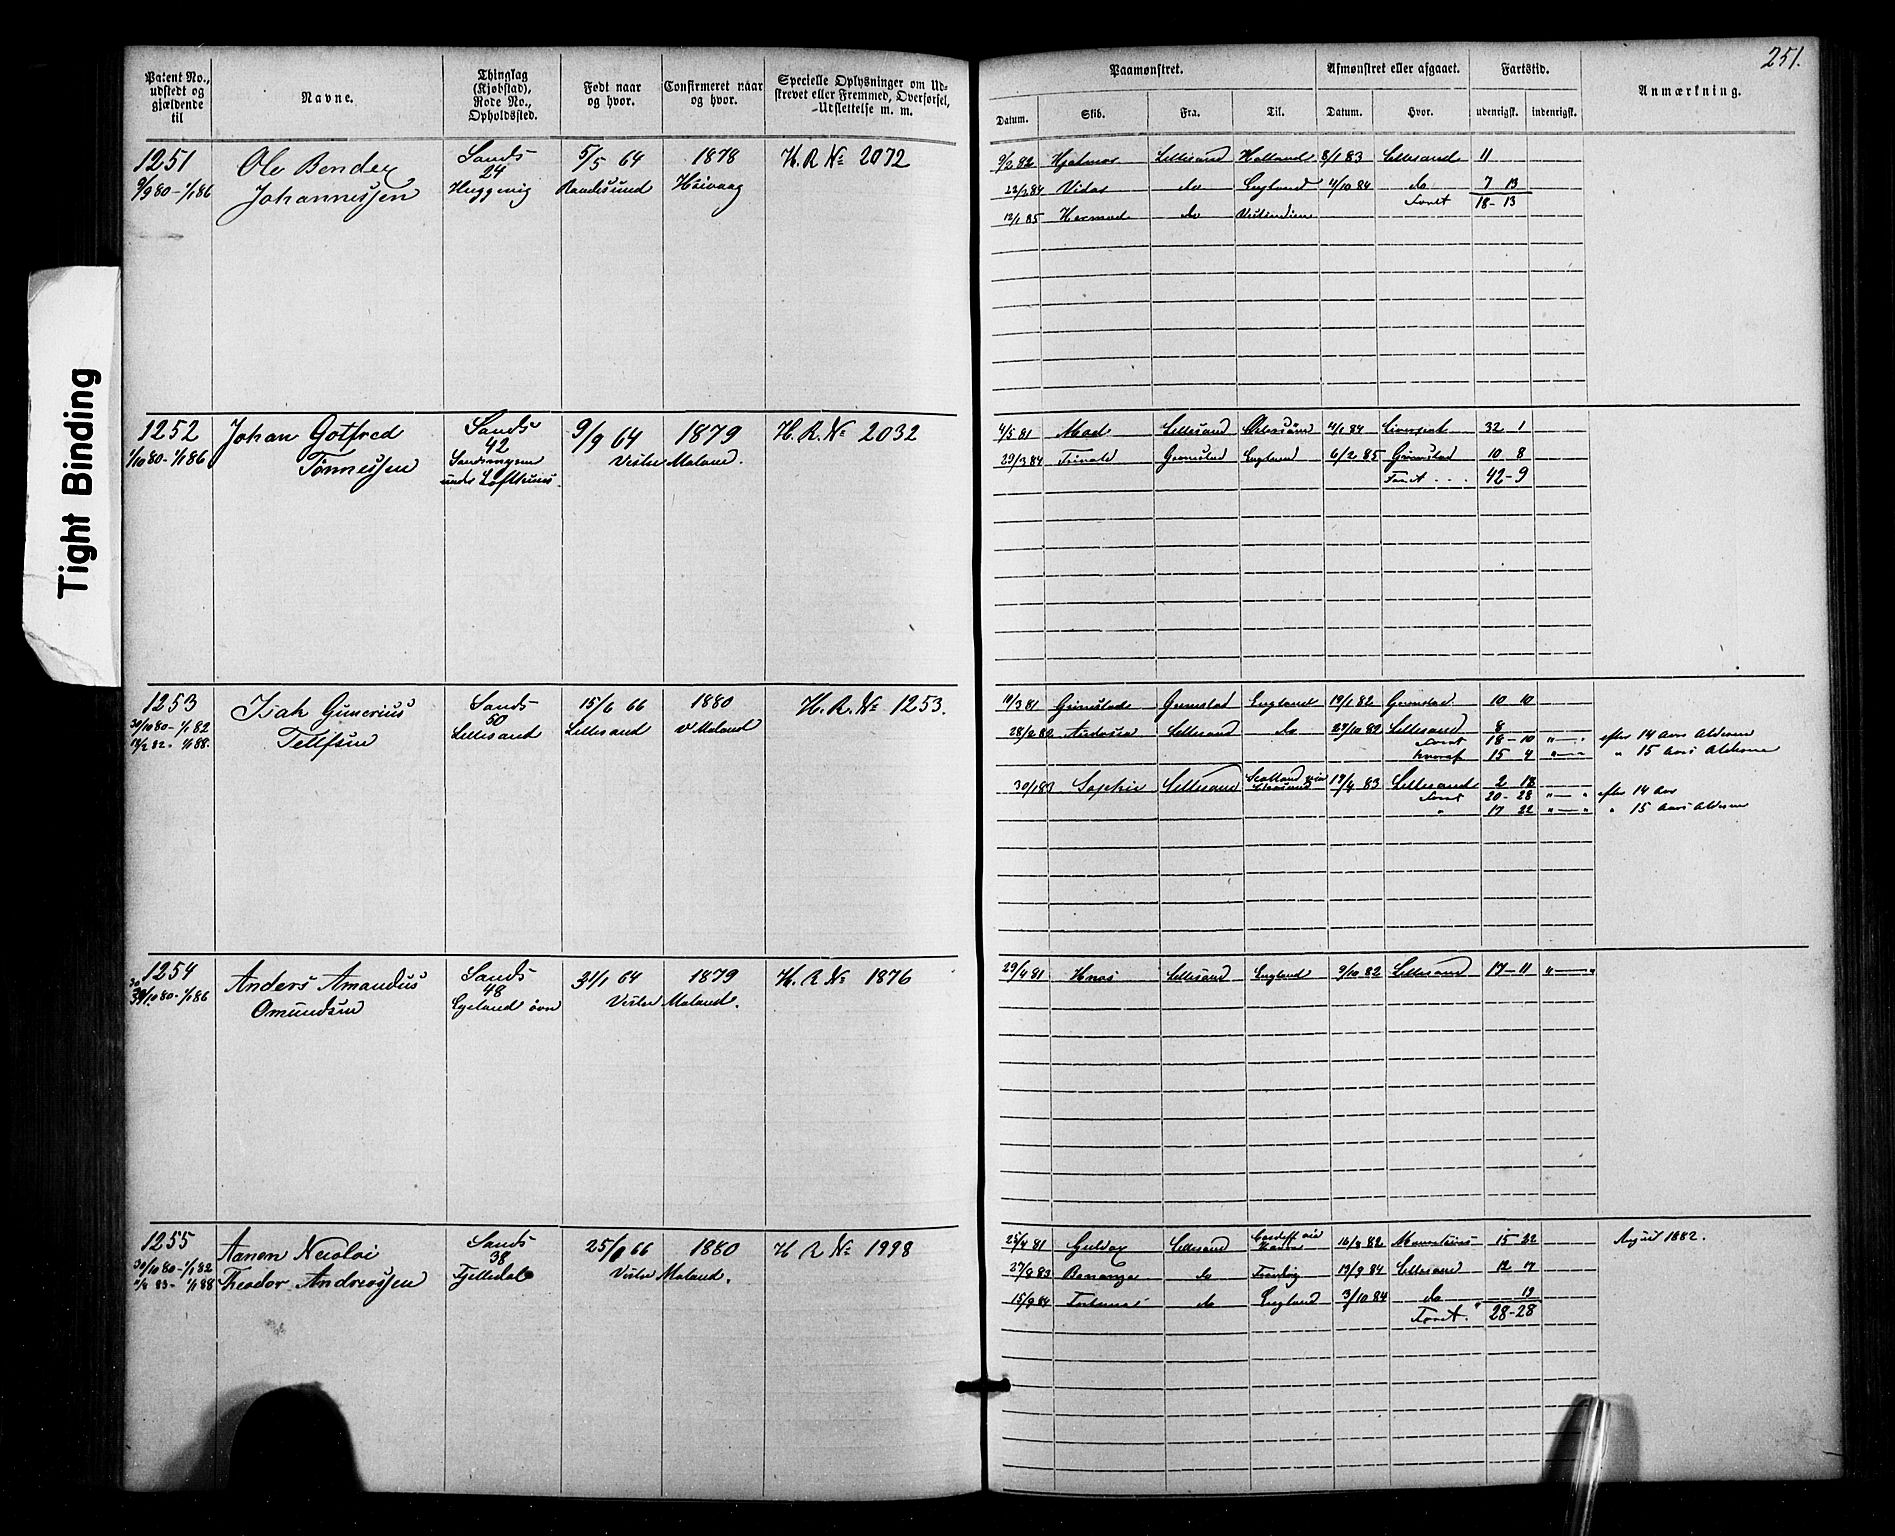 251.
Tight Binding
Patent No., udstedt og gjældende til
Navne.
Thinglag (Kjøbstad), Rode No., Opholdssted.
Født naar og hvor.
Confirmeret naar og hvor.
Specielle Oplysninger om Udskrevet eller Fremmed, Overførsel, Udslettelse m. m.
Paamønstret.
Afmønstret eller afgaaet.
Fartstid.
Anmærkning.
Datum. Skib. Fra. Til. Datum. Hvor. udenrigsk. indenrigsk.
1251
9/9 80 - 1/1 86
Ole Bender
Johannessen
Sands
24
Huggevig
5/5 64
Randesund
1878
Høivaag
H. R № 2072
9/2 82 Hjalmar Lillesand Holland 8/1 83 Lillesand 11
22/2 84 Vidar do England 4/10 84 do 7 13
Tont 18 - 13
12/1 85 Hermod do Vestindien
1252
1/10 80 - 1/1 86
Johan Gotfred
Tønnessen
Sands
42
Sandsmyren
under Lofthuus.
9/9 64
1879
Vestre Moland.
H. R. № 2032
4/5 81 Lillesand 4/1 84 Liverpool 32 1
29/3 84 Grimstad England 6/2 85 Grimstad 10 8
42 - 9
1253
30/10 80 - 1/1 82
1/1 88.
Isak Gunerius
Tellfsen
Sands
50
Lillesand
15/6 66
Lillesand
1880
V Moland
H. R. № 1253.
19/3 81 Grimstad England 19/1 82 Grimstad 10 10
28/2 82 Lillesand do 27/10 82 Lillesand 8
18 - 10 " — " efter 14 Aars Alderen
hvoraf 15 4 " — " " 15 Aars Alderen
30/1 83 Sophie Lillesand Scotland via 19/4 83 Lillesand 2 18
20 - 28 " — " efter 14 Aar
" 17 22 " — " " 15 Aars Alderen
1254
30/10 80 - 1/1 86
Anders Amandus
Omundsen
Sands
48
Egeland øvre
31/1 64
1879
Vestre Moland.
H. R № 1876
29/4 81 Lillesand England 9/10 82 Lillesand 17 - 11 " — "
1255
30/10 80 - 1/1 82
83 - 1/1 88
Aanon Nicolai
Theodor Andreassen
Sands
38
Tjelledale
25/6 66
1880
Vestre Moland.
H R № 1998
25/4 81 Lillesand Cardiff via 16/8 82 15 - 22 August 1882.
27/8 83 Bonanza do 19/9 84 Lillesand 12 17
15/9 84 do England 3/10 84 do 19
28 - 28